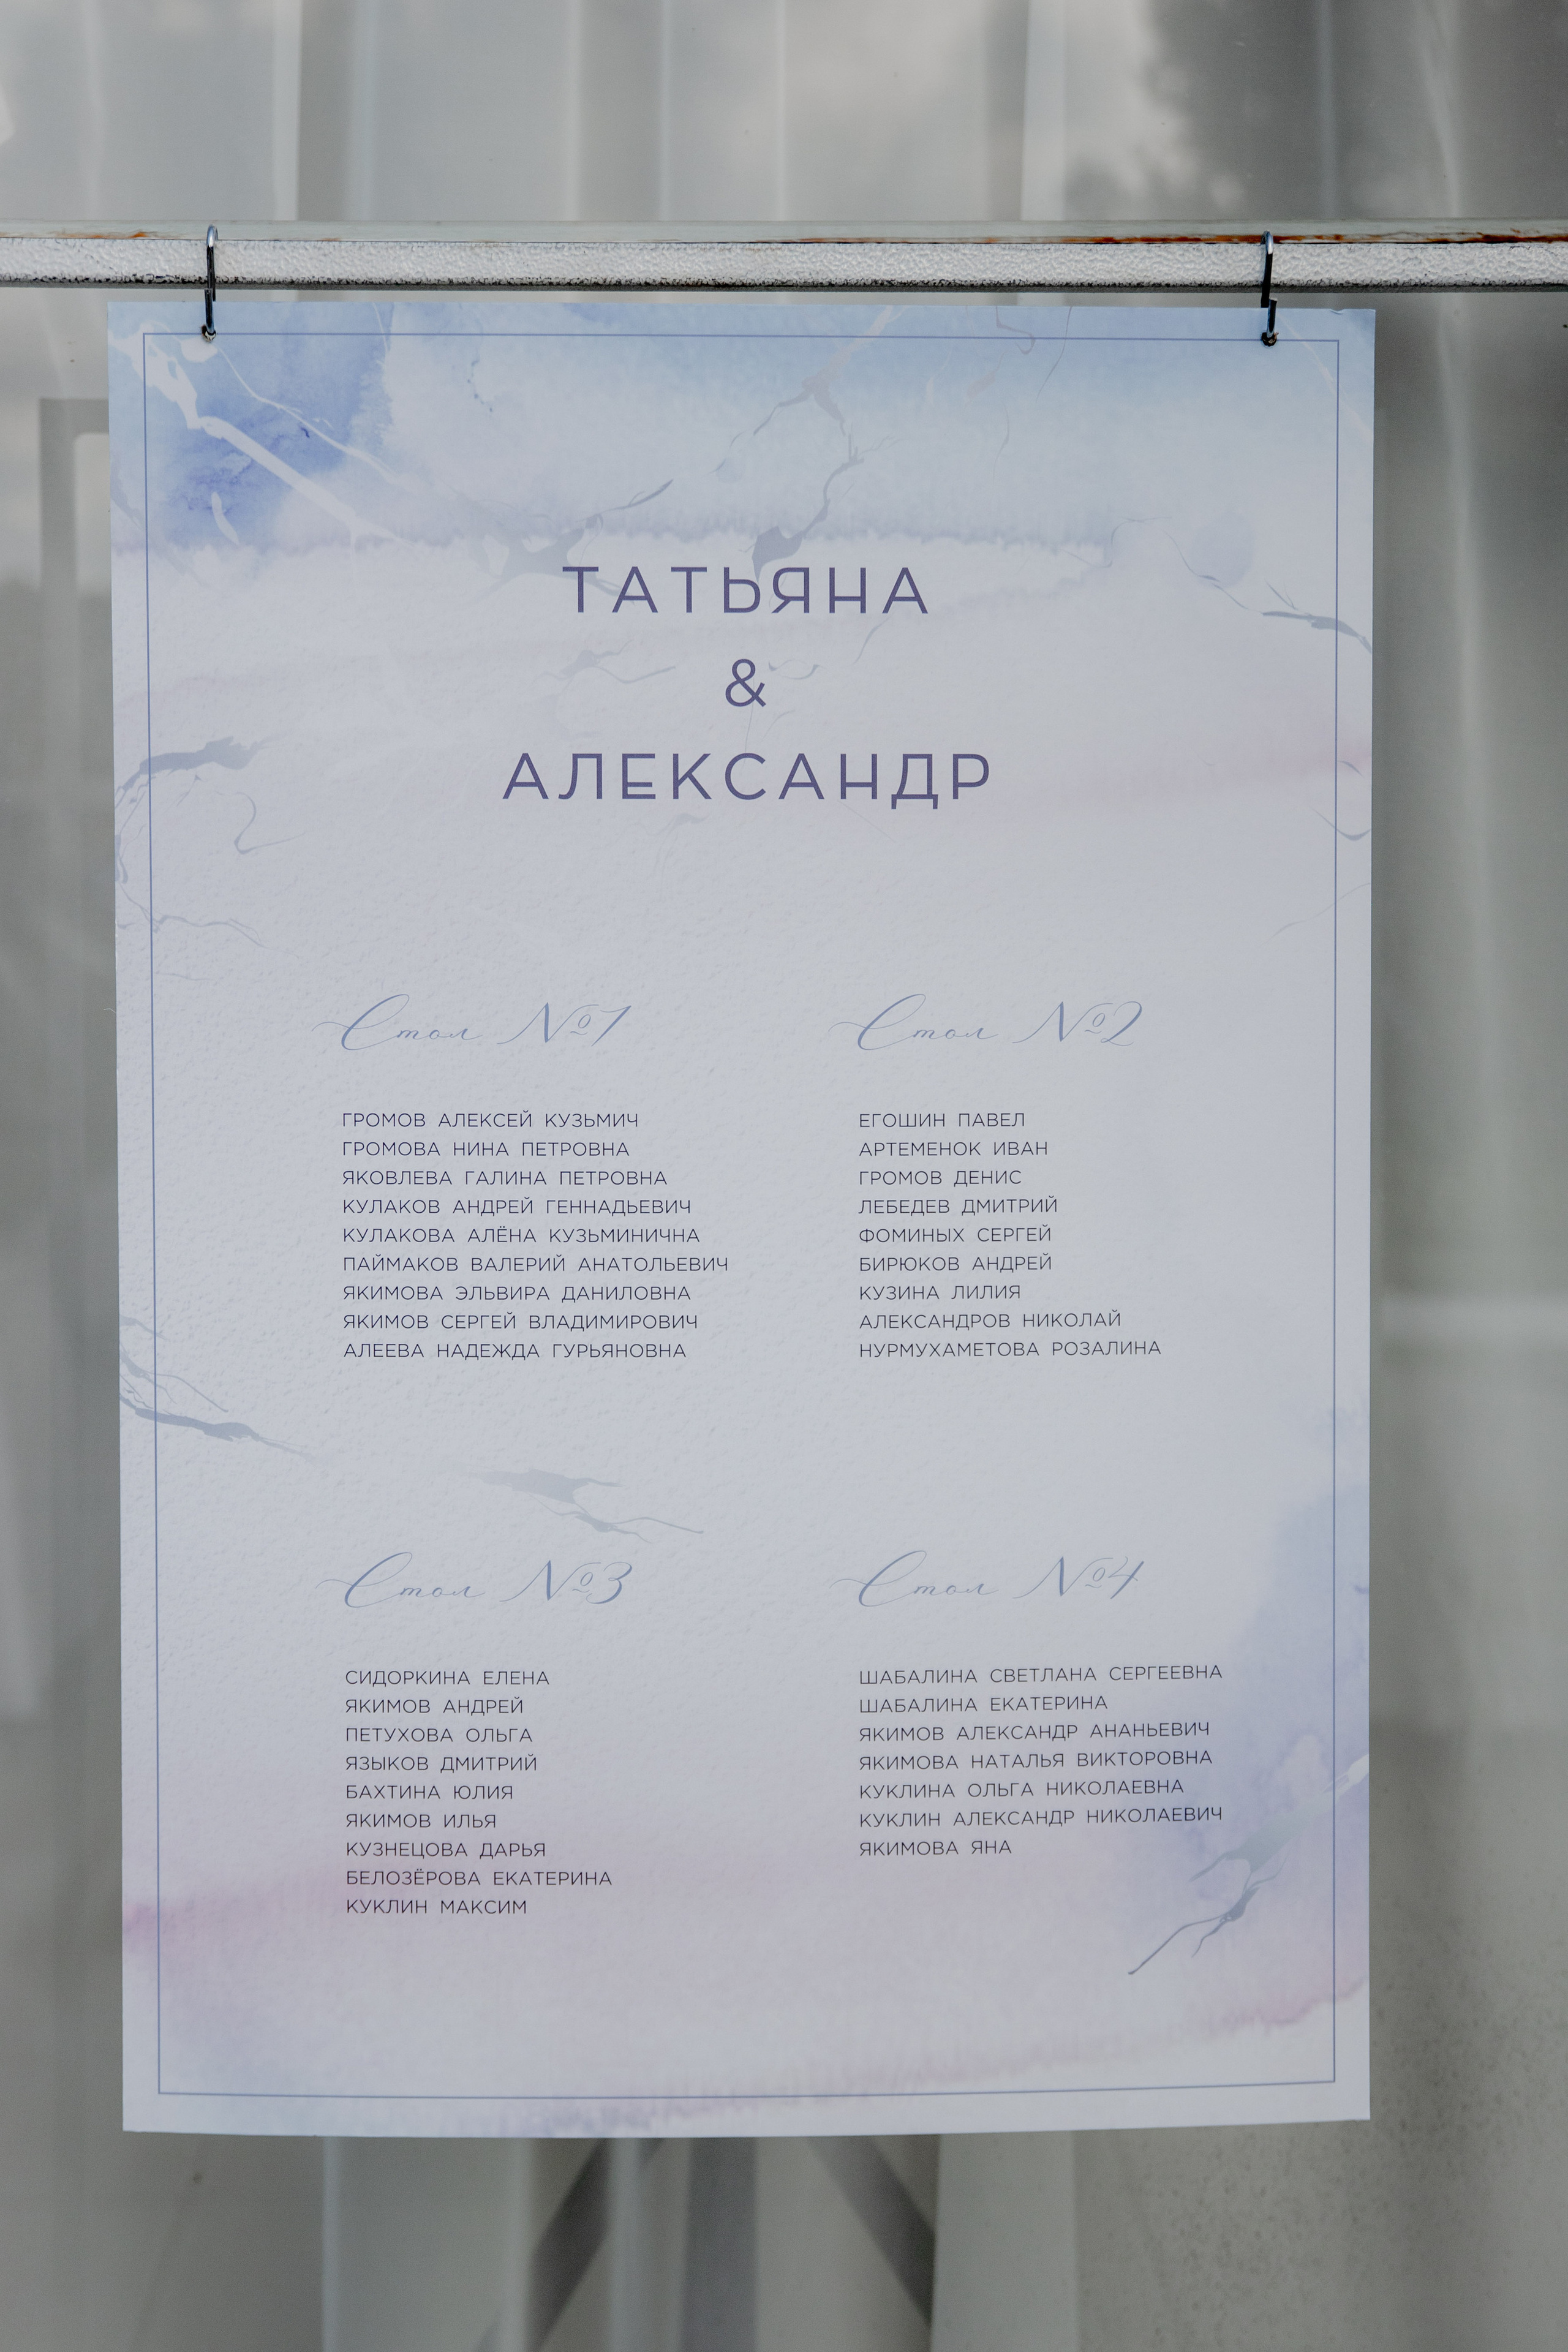 ТАТЬЯНА
&
АЛЕКСАНДР
Стол №1
ГРОМОВ АЛЕКСЕЙ КУЗЬМИЧ
ГРОМОВА НИНА ПЕТРОВНА
ЯКОВЛЕВА ГАЛИНА ПЕТРОВНА
КУЛАКОВ АНДРЕЙ ГЕННАДЬЕВИЧ
КУЛАКОВА АЛЁНА КУЗЬМИНИЧНА
ПАЙМАКОВ ВАЛЕРИЙ АНАТОЛЬЕВИЧ
ЯКИМОВА ЭЛЬВИРА ДАНИЛОВНА
ЯКИМОВ СЕРГЕЙ ВЛАДИМИРОВИЧ
АЛЕЕВА НАДЕЖДА ГУРЬЯНОВНА
Стол №2
ЕГОШИН ПАВЕЛ
АРТЕМЕНОК ИВАН
ГРОМОВ ДЕНИС
ЛЕБЕДЕВ ДМИТРИЙ
ФОМИНЫХ СЕРГЕЙ
БИРЮКОВ АНДРЕЙ
КУЗИНА ЛИЛИЯ
АЛЕКСАНДРОВ НИКОЛАЙ
НУРМУХАМЕТОВА РОЗАЛИНА
Стол №3
СИДОРКИНА ЕЛЕНА
ЯКИМОВ АНДРЕЙ
ПЕТУХОВА ОЛЬГА
ЯЗЫКОВ ДМИТРИЙ
БАХТИНА ЮЛИЯ
ЯКИМОВ ИЛЬЯ
КУЗНЕЦОВА ДАРЬЯ
БЕЛОЗЁРОВА ЕКАТЕРИНА
КУКЛИН МАКСИМ
Стол №4
ШАБАЛИНА СВЕТЛАНА СЕРГЕЕВНА
ШАБАЛИНА ЕКАТЕРИНА
ЯКИМОВ АЛЕКСАНДР АНАНЬЕВИЧ
ЯКИМОВА НАТАЛЬЯ ВИКТОРОВНА
КУКЛИНА ОЛЬГА НИКОЛАЕВНА
КУКЛИН АЛЕКСАНДР НИКОЛАЕВИЧ
ЯКИМОВА ЯНА